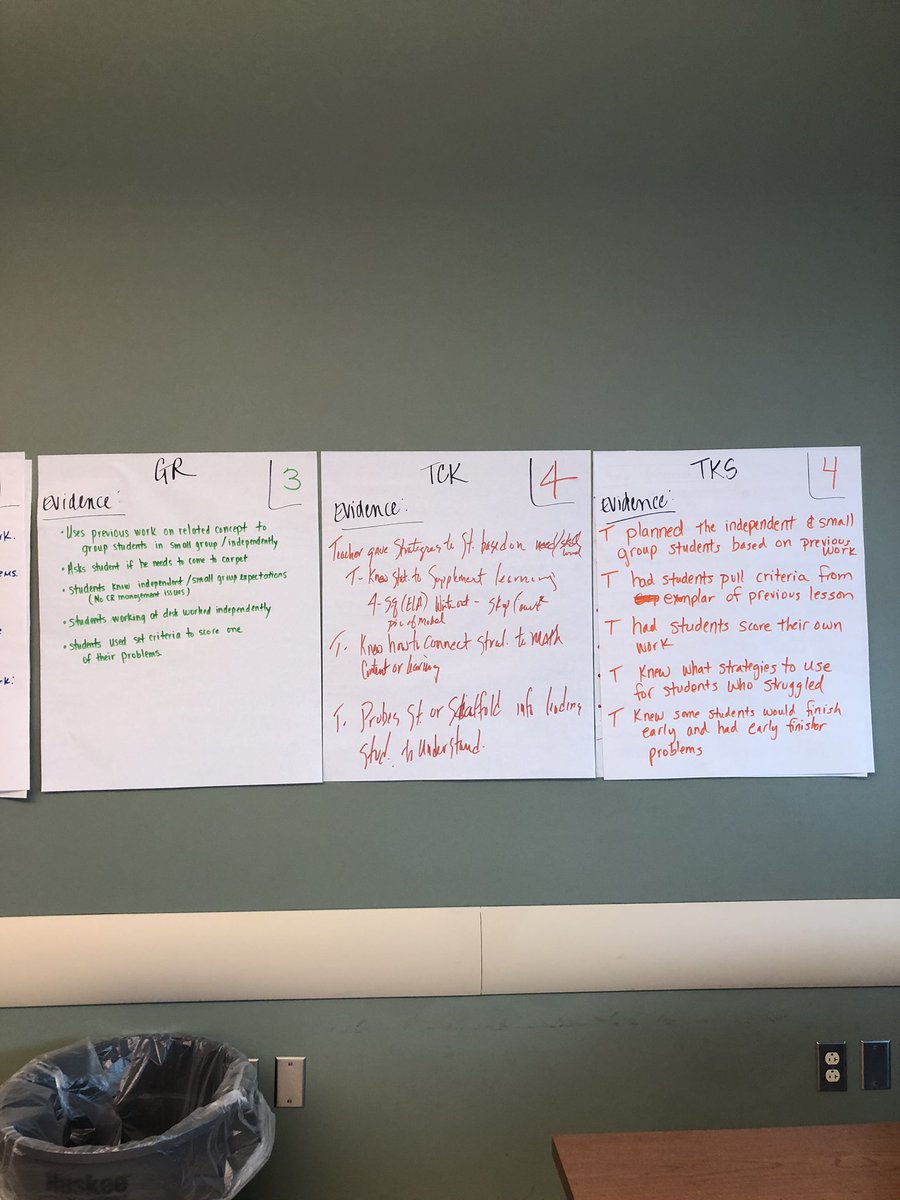 rk.
ems.
e
rk:
GR
3
Evidence:
• Uses previous work on related concept to
group students in small group / independently
• Asks student if he needs to come to carpet
• Students know independent/small group expectations
(No CR management issues)
• Students working at desk worked independently
• Students used set criteria to score one
of their problems.
TCK
4
Evidence:
Teacher gave Strategies to St. based on need/skill
T- Know to Supplement learning
4-Sq (ELA) Without - Skip Count
pic of Model
T. Know how to connect Strat. to math
Content or learning
T. Probes St. or Scaffold info leading
Stud. to Understand.
TKS
4
Evidence:
T planned the independent & small
group students based on previous
work
T had students pull criteria from
exemplar of previous lesson
T had students score their own
work
T Knew what strategies to use
for students who struggled
T Knew some students would finish
early and had early finisher
problems
Huskee